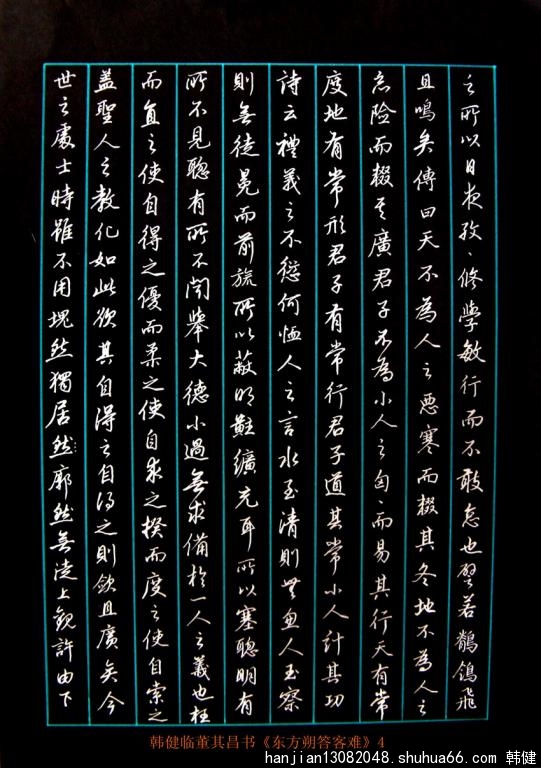 之所以日夜孜、修學敏行而不敢怠也譬若鶺鴒飛
且鳴矣傳曰天不為人之惡寒而輟其冬地不為人之
惡险而輟其廣君子不為小人之匈、而易其行天有常
度地有常形君子有常行君子道其常小人計其功
詩云禮義之不愆何恤人之言水至清則無魚人至察
則無徒冕而前旒所以蔽明黈纊充耳所以塞聰明有
所不見聰有所不闻舉大德小過無求備於一人之義也枉
而直之使自得之優而柔之使自求之揆而度之使自索之
盖聖人之教化如此欲其自得之自得之則敏且廣矣今
世之處士時雖不用塊然獨居然廓然無徒上觀許由下
韩健临董其昌书《东方朔答客难》4
hanjian13082048.shuhua66.com 韩健